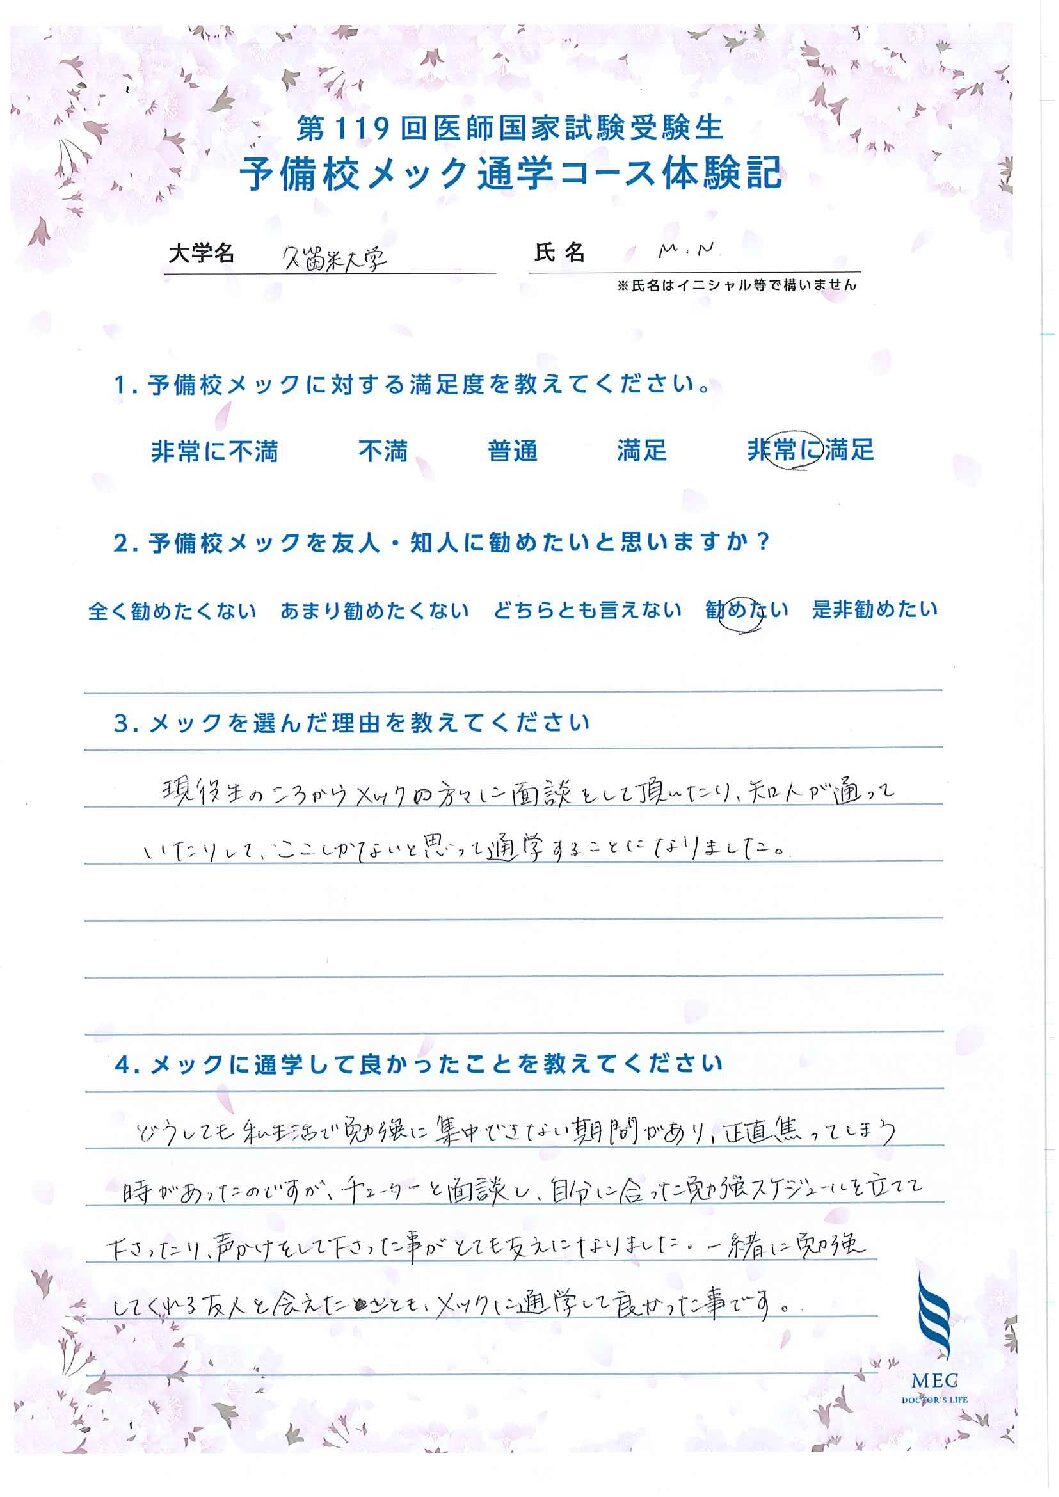 第119回医師国家試験受験生
予備校メック通学コース体験記
大学名 久留米大学 氏名 M.N.
※氏名はイニシャル等で構いません
1. 予備校メックに対する満足度を教えてください。
非常に不満 不満 普通 満足 非常に満足
2. 予備校メックを友人・知人に勧めたいと思いますか？
全く勧めたくない あまり勧めたくない どちらとも言えない 勧めたい 是非勧めたい
3. メックを選んだ理由を教えてください
現役生のころからメックの方々に面談をして頂いたり、知人が通って
いたりして、ここしかないと思って通学することになりました。
4. メックに通学して良かったことを教えてください
どうしても私生活で勉強に集中できない期間があり、正直焦ってしまう
時があったのですが、チューターと面談し、自分に合った勉強スケジュールを立てて
下さったり、声かけをして下さった事がとても支えになりました。一緒に勉強
してくれる友人と会えたことも、メックに通学して良かった事です。
MEC
DOCTOR'S LIFE